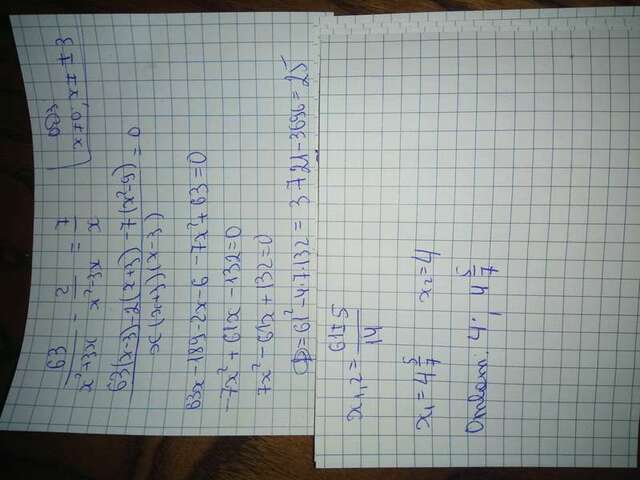 63/(x²+3x) - 2/(x²-3x) = 7/x
ОДЗ
x≠0, x≠±3
(63(x-3)-2(x+3)-7(x²-9))/(x(x+3)(x-3)) = 0
63x-189-2x-6-7x²+63=0
-7x²+61x-132=0
7x²-61x+132=0
D=61²-4·7·132=3721-3696=25
x₁,₂=(61±5)/14
x₁=4 5/7 x₂=4
Ответ: 4; 4 5/7